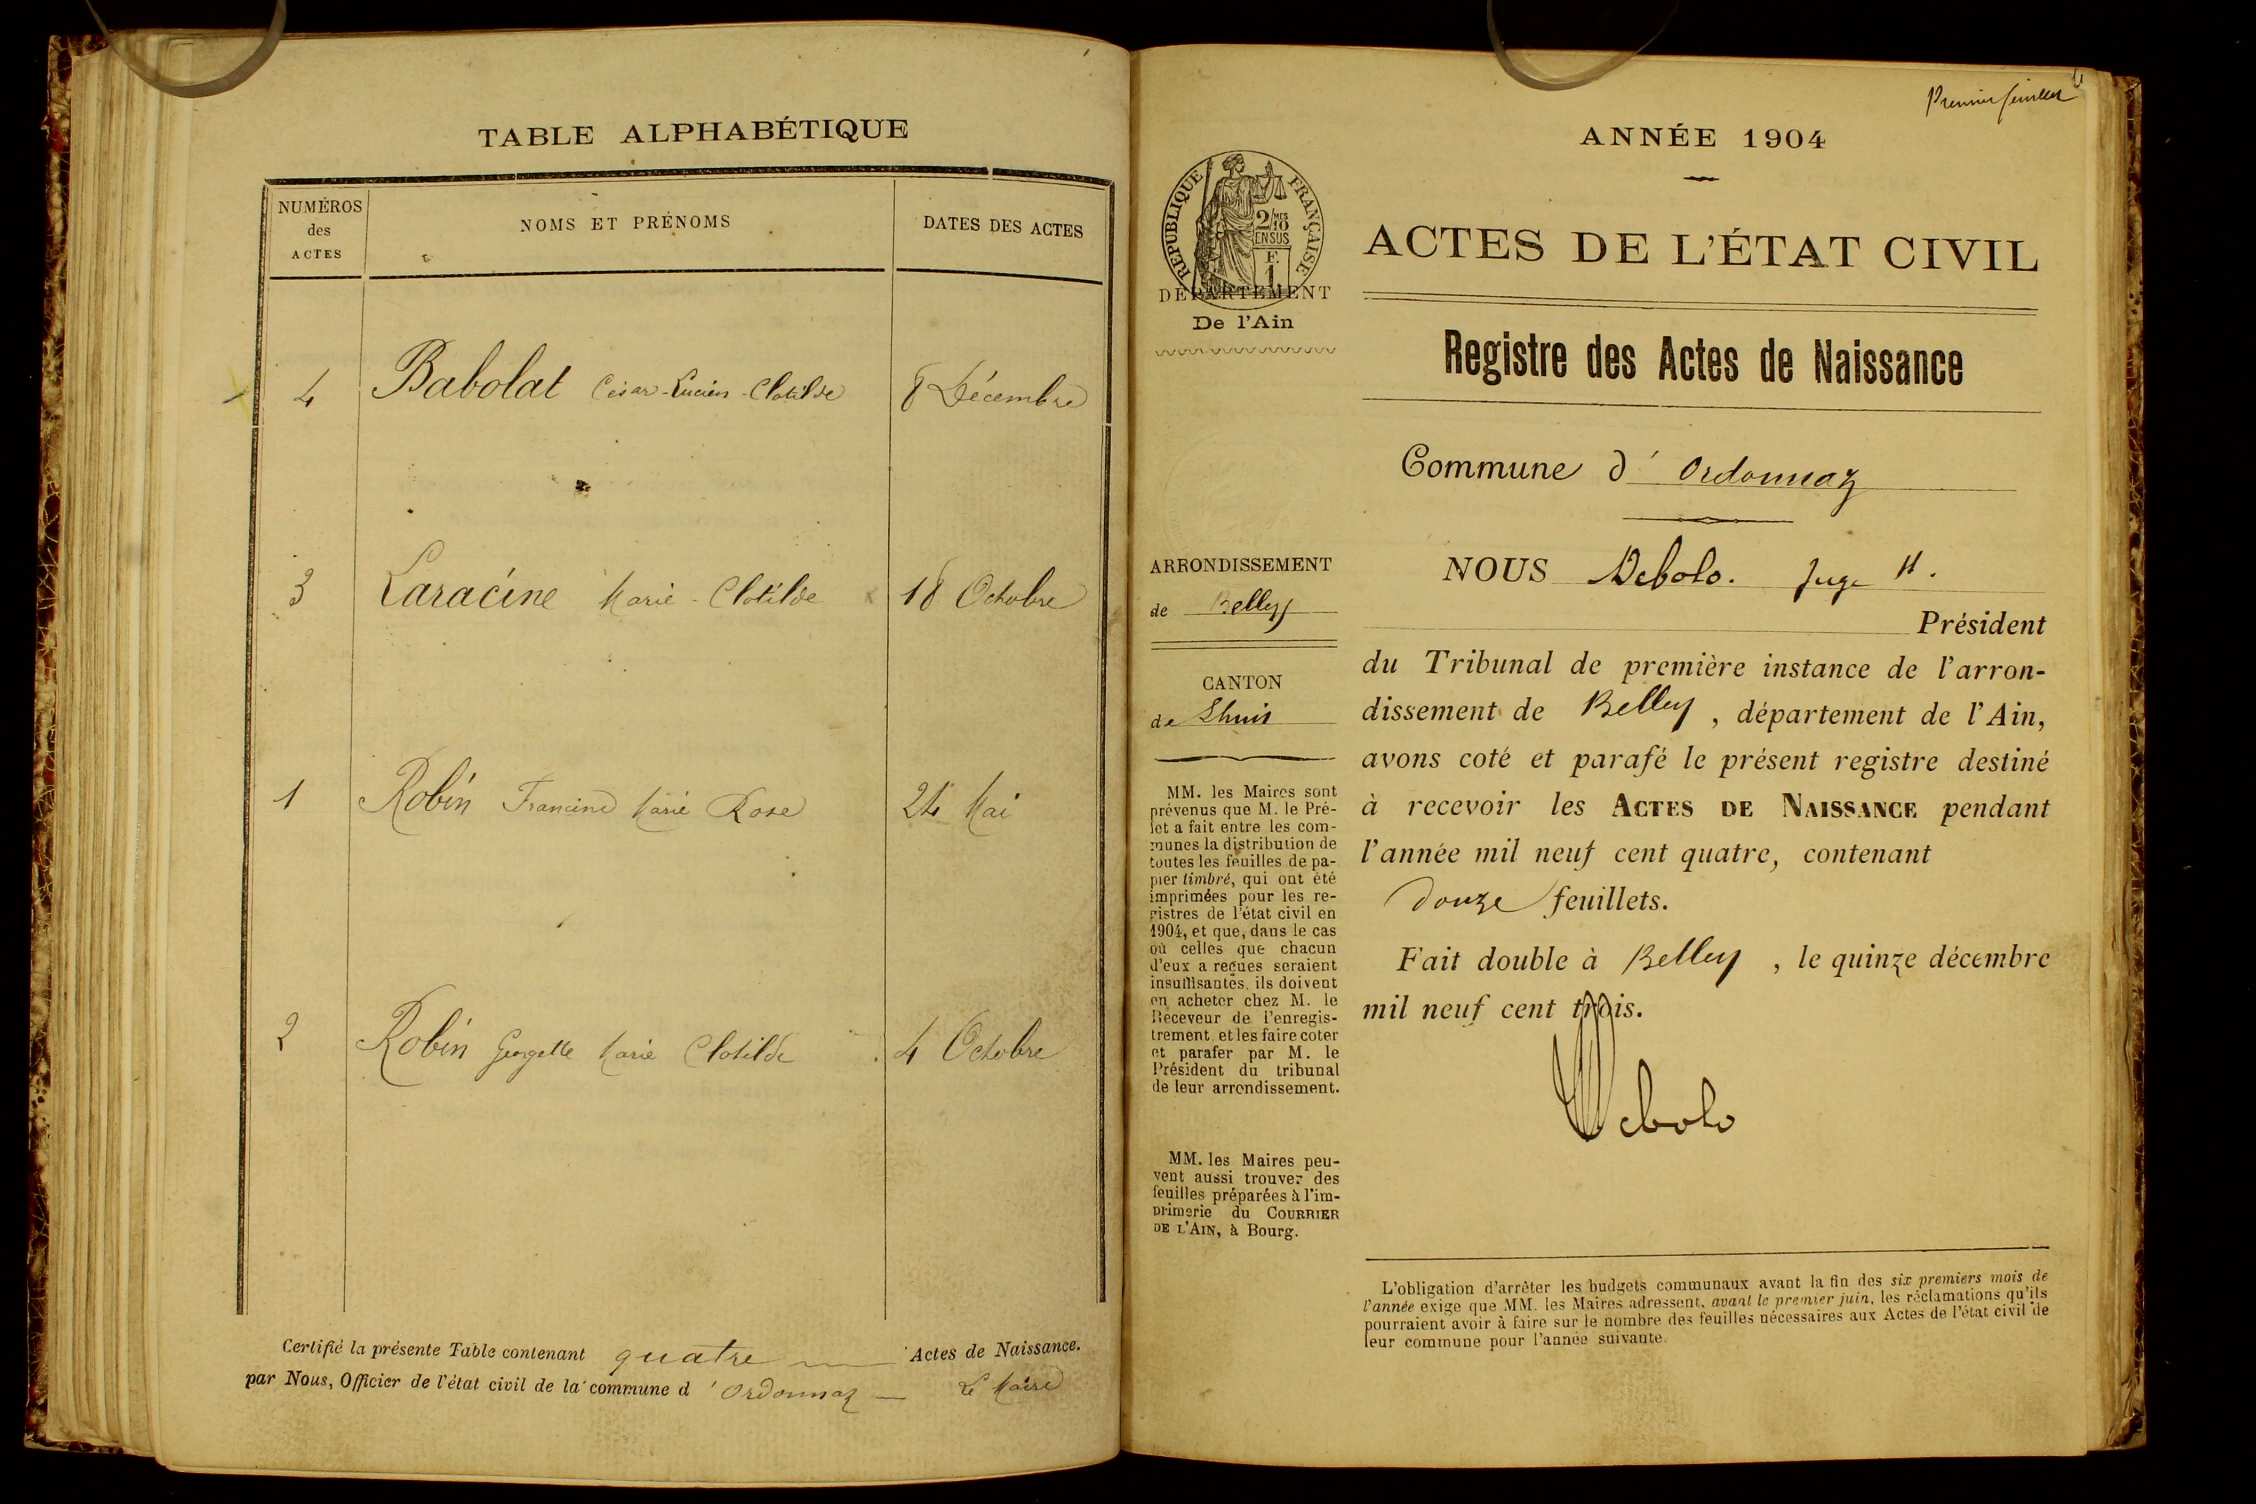 TABLE ALPHABÉTIQUE
NUMÉROS
des
ACTES
NOMS ET PRÉNOMS
DATES DES ACTES
4 Babolat César-Lucien-Clotilde 8 Décembre
3 Laracine Marie-Clotilde 18 Octobre
1 Robin Francine Marie Rose 24 Mai
2 Robin Georgette Marie Clotilde 4 Octobre
Certifié la présente Table contenant quatre Actes de Naissance.
par Nous, Officier de l'état civil de la commune d'Ordonnaz Le Maire
Premier feuillet
ANNÉE 1904
RÉPUBLIQUE FRANÇAISE
2/10 MES
EN SUS
F.
1
ACTES DE L'ÉTAT CIVIL
DÉPARTEMENT
De l'Ain
Registre des Actes de Naissance
Commune d'Ordonnaz
ARRONDISSEMENT
de Belley
CANTON
de Lhuis
MM. les Maires sont
prévenus que M. le Pré-
fet a fait entre les com-
munes la distribution de
toutes les feuilles de pa-
pier timbré, qui ont été
imprimées pour les re-
gistres de l'état civil en
1904, et que, dans le cas
où celles que chacun
d'eux a reçues seraient
insuffisantes, ils doivent
en acheter chez M. le
Receveur de l'enregis-
trement et les faire coter
et parafer par M. le
Président du tribunal
de leur arrondissement.
MM. les Maires peu-
vent aussi trouver des
feuilles préparées à l'im-
primerie du COURRIER
DE L'AIN, à Bourg.
NOUS Debolo. Juge
Président
du Tribunal de première instance de l'arron-
dissement de Belley, département de l'Ain,
avons coté et parafé le présent registre destiné
à recevoir les ACTES DE NAISSANCE pendant
l'année mil neuf cent quatre, contenant
douze feuillets.
Fait double à Belley, le quinze décembre
mil neuf cent trois.
Debolo
L'obligation d'arrêter les budgets communaux avant la fin des six premiers mois de
l'année exige que MM. les Maires adressent, avant le premier juin, les réclamations qu'ils
pourraient avoir à faire sur le nombre des feuilles nécessaires aux Actes de l'état civil de
leur commune pour l'année suivante.